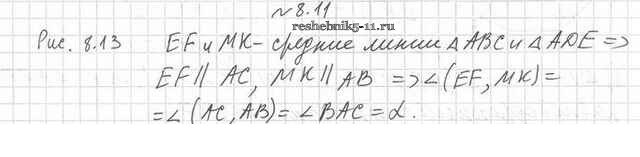 №8.11
reshebnik5-11.ru
Рис. 8.13 EF и MK - средние линии △ABC и △ADE =>
EF || AC, MK || AB => ∠(EF, MK) =
= ∠(AC, AB) = ∠BAC = α.